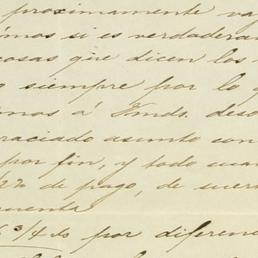 proximamente va
mos si es verdadera
cosas que dicen los
siempre por lo q
mos á Vmds. des
raciado asunto con
por fin, y todo cua
de pago, de suer
uenta
3/4 ds por diferen